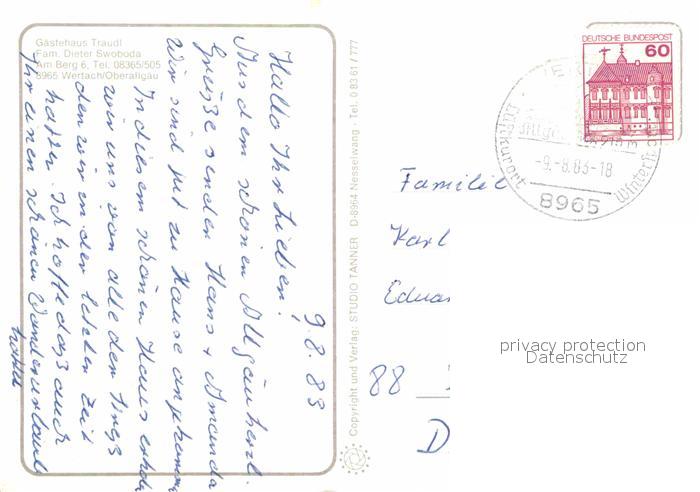 Gästehaus Traudl
Fam. Dieter Swoboda
Am Berg 6, Tel. 08365/505
8965 Wertach/Oberallgäu
9.8.83
Hallo Ihr Lieben!
Aus dem schönen Allgäu herzl.
Grüße senden Hans + Amanda
Wir sind gut zu Hause angekommen
In diesem schönen Haus
wir uns von all den
den wir in der letzten Zeit
hatten. Ich hoffe daß auch
Ihr einen schönen Wanderurlaub
hattet
Copyright und Verlag: STUDIO TANNER D-8964 Nesselwang · Tel. 0 83 61 / 777
DEUTSCHE BUNDESPOST
60
Luftkurort
915 m
-9.-8.83-18
8965
Familie
Karl
Eduar
88
D
privacy protection
Datenschutz